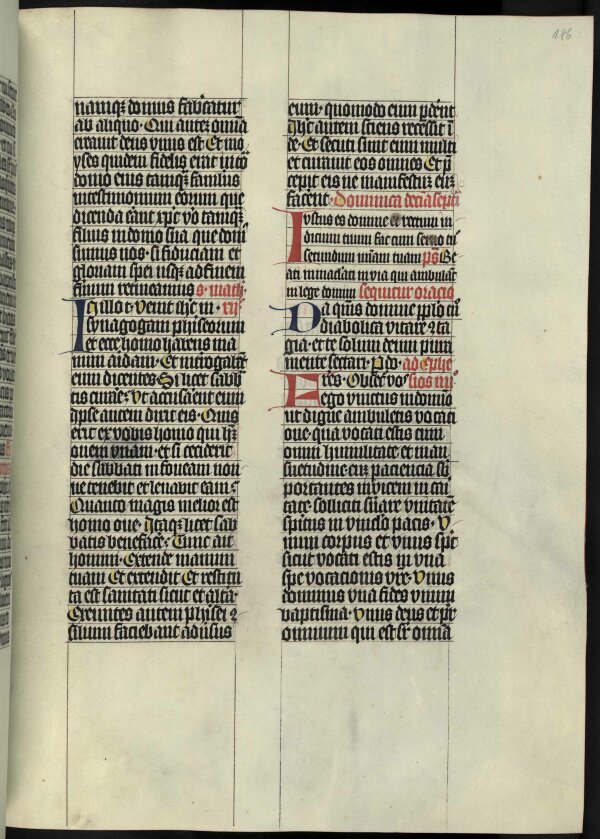 186
namq̃ domus fabricatur
ab aliquo. Qui autẽ omnia
creauit deus vnus est Et mo
yses quidem fidelis erat in to
domo eius tamq̃ famulus
in testimonium eorum que
dicenda erant xp̃c vo tamq̃
filius in domo sua que dom
sumus nos. si fiduciam et
gloriam spei usq̃ ad finem
firmam retineamus s. math.
In illo t. venit ihc in xii
synagogam phiseorum
et ecce homo habens ma
num aridam. Et interrogabãt
eum dicentes. Si licet sabb
tis curare. Vt accusarent eum
Ipse autem dixit eis. Quis
erit ex vobis homo qui hz
ouem vnam. et si ceciderit
die sabbati in foueam non
ne tenebit et leuabit eam.
Quanto magis melior est
homo oue. Itaq̃ licet sab
batis benefacẽ. Tunc ait
homini. Extende manum
tuam Et extendit Et restitu
ta est sanitati sicut et altã.
Exeuntes autem phisei 2
silium faciebant aduersus
eum. quomodo eum pderent
Ihc autem sciens recessit ĩ
de. Et secuti sunt eum multi
et curauit eos omnes Et p̃
cepit eis ne manifestũ eũ
facerent. Dominica decia septi
Iustus es domine et rectum iu
dicium tuum fac cum seruo tuo
secundum miam tuam ps̃ Be
ati inmaclati in via qui ambulãt
in lege domini sequitur oracio
Da q̃us domine pplo tuo
diabolica vitare 2ta
gia. et te solum deum pura
mente sectari. P do. ad ephe
Fres. Obsecro vos sios iiii
ego vinctus in domino
ut digne ambuletis vocati
one. qua vocati estis cum
omni humilitate et man
suetudine cum paciencia sup
portantes inuicem in cari
tate solliciti suare vnitatẽ
spiritus in vinclo pacis. V
num corpus et vnus spc̃
sicut vocati estis in vna
spe vocacionis vrẽ. Vnus
dominus vna fides vnum
baptisma. Vnus deus et pr̃
omnium qui est sr̃ omnia